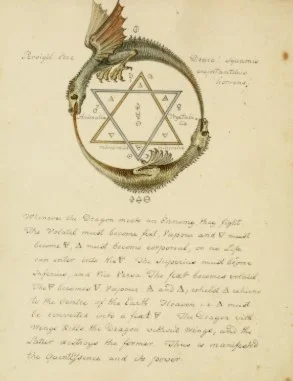 Draco squamis
Animalia
Vegetabi
lia
Mineralia
Whenever the Dragon meets an Enemy they fight
The Volatil must become fixt, Vapour and 🜄 must
become 🜃, 🜂 must become corporeal, or no Life
can enter into the 🜃. The Superius must become
Inferius, and Vice Versa. The fixt becomes volatil
The 🜃 becomes 🜄 Vapour 🜁 and 🜂, whilst 🜂 returns
to the Centre of the Earth. Heaven i.e. 🜂 must
be converted into a fixt 🜃. The Dragon with
Wings kills the Dragon without Wings, and the
Latter destroys the former. Thus is manifested
the Quintessence and its power.